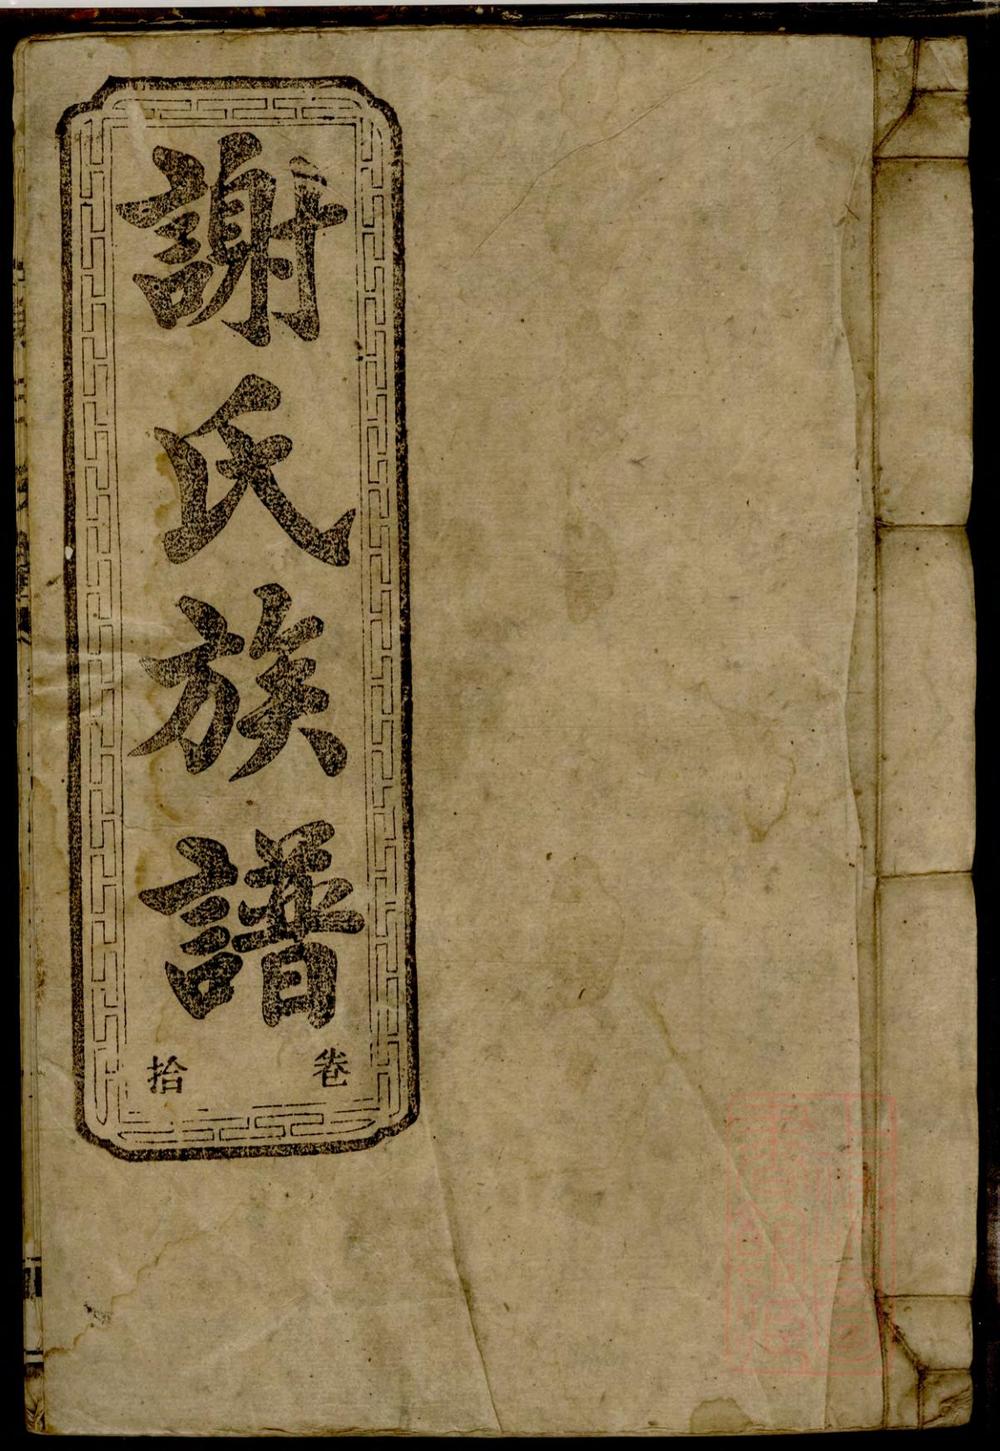 謝氏族譜
卷拾